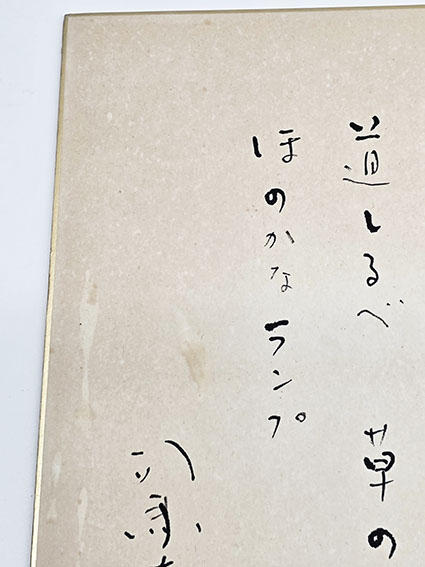 道しるべ 草の
ほのかなランプ
司馬